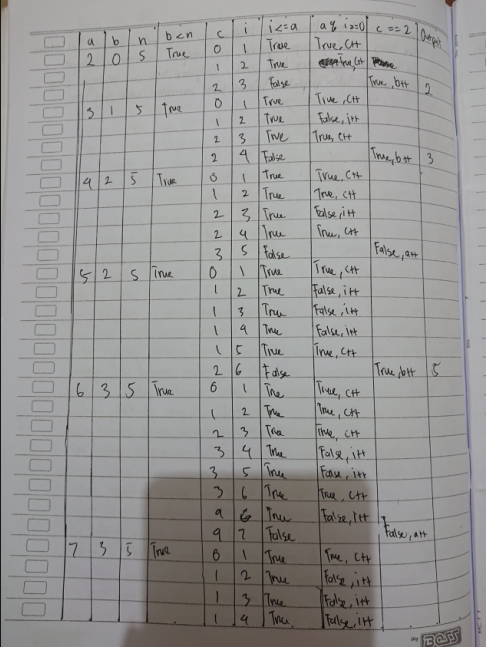 a b n b<n c i i<=a a % i==0 c==2 Output
2 0 5 True 0 1 True True, c++
1 2 True True, c++
2 3 False True, b++ 2
3 1 5 True 0 1 True True, c++
1 2 True False, i++
2 3 True True, c++
2 4 False True, b++ 3
4 2 5 True 0 1 True True, c++
1 2 True True, c++
2 3 True False, i++
2 4 True True, c++
3 5 False False, a++
5 2 5 True 0 1 True True, c++
1 2 True False, i++
1 3 True False, i++
1 4 True False, i++
1 5 True True, c++
2 6 False True, b++ 5
6 3 5 True 0 1 True True, c++
1 2 True True, c++
2 3 True True, c++
3 4 True False, i++
3 5 True False, i++
3 6 True True, c++
6 True False, i++
7 False False, a++
7 3 5 True 0 1 True True, c++
1 2 True False, i++
1 3 True False, i++
1 4 True False, i++
BOSS